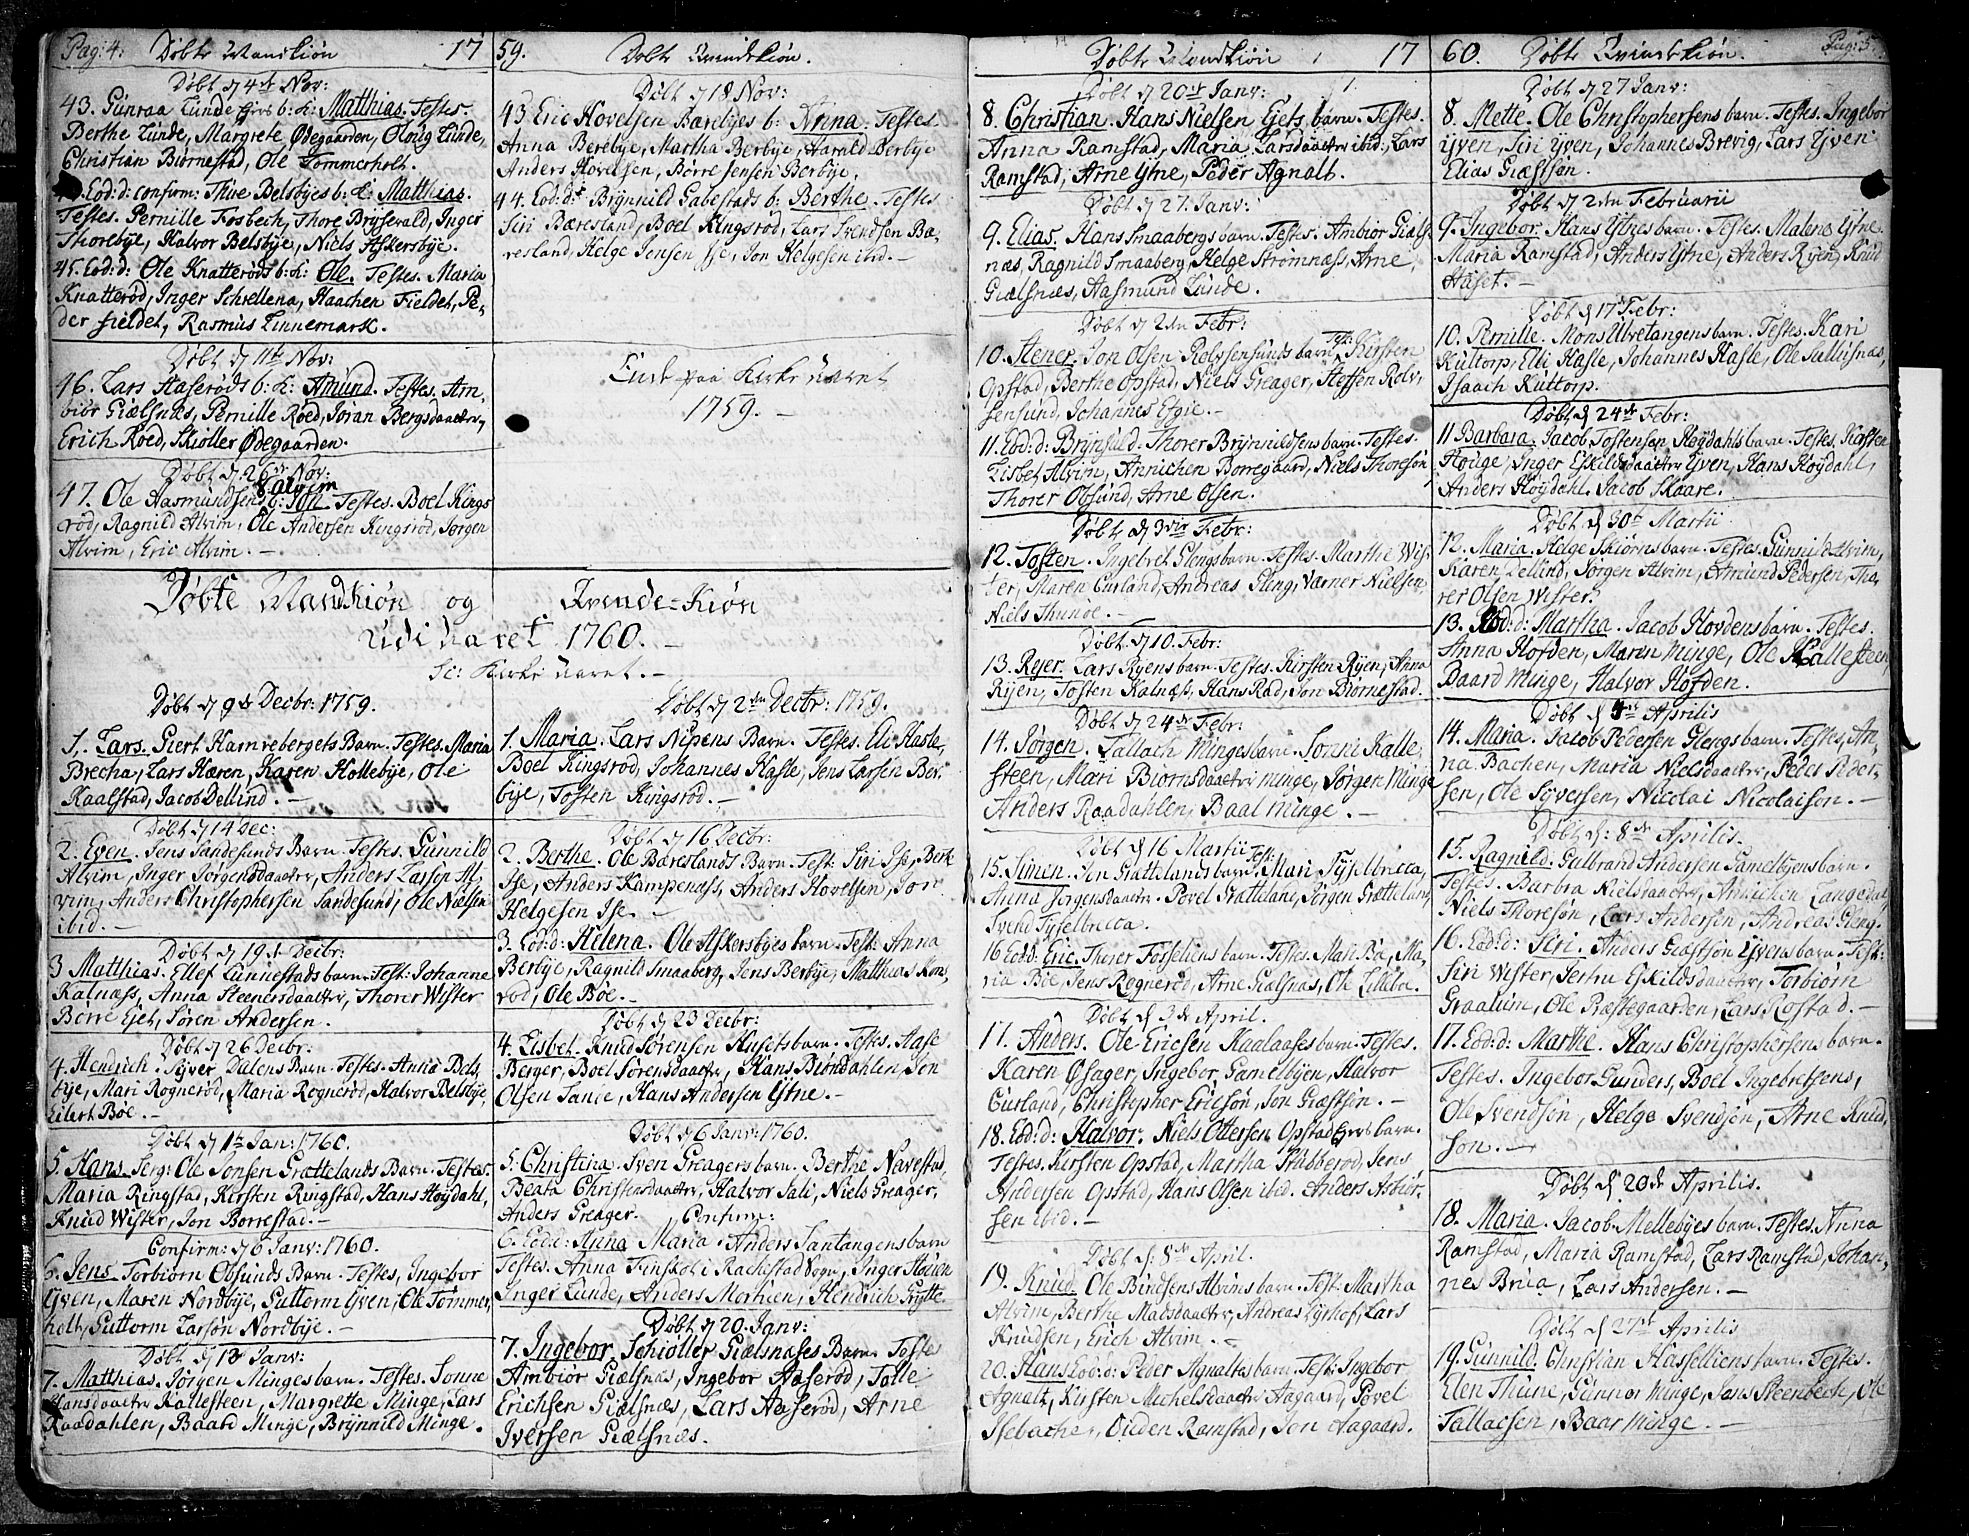 Pag: 4. Døbte Mandkiøn 17
Døbt d 4de Nov:
43. Gunraa Lunde b: k: Matthias. Testes.
Berthe Lunde, Margrete Ødegaarden, Oloug Lunde,
Christian Biørnestad, Ole Tommerholt.
Eod: d: confirm: Thore Belsbyes b: k: Matthias.
Testes. Pernille Fosbech, Thore Bryserald, Inger
Thorebye, Halvor Belsbye, Niels Askersbye.
45. Eod: d: Ole Knatterøds b: k: Ole. Testes. Maria
Knatterød, Inger Schrellena, Haachen Fieldet, Pe-
der Fieldet, Rasmus Linnemark.
Døbt d 11te Nov:
46. Lars Haserøds b: k: Amund. Testes. Am-
biør Giælsnæs, Pernille Røed, Jøran Bergsdaatter,
Erich Roed, Skiøller Ødegaarden.
Døbt d 26de Nov:
Alvim
47. Ole Aasmundsens b: Jon. Testes. Boel Kings
rød, Ragnild Alvim, Ole Andersen Kingsrød, Jørgen
Alvim, Eric Alvim. —
59. Døbte Qvindekiøn.
Døbt d 18 Nov:
43 Eric Hovelsen Bærebyes b: Anna. Testes.
Anna Berebye, Martha Berbye, Harald Berbye
Anders Hovelsen, Børre Jensen Berbye.
44. Eod: d: Brynnild Gabestads b: Berthe. Testes.
Siri Bæresland, Boel Kingsrød, Lars Svendsen Bæ-
resland, Helge Jensen Ise, Jon Helgesen ibid. —
Ende paa Kirke Aaret
1759. —
Døbte Mandkiøn og Qvinde-Kiøn
udi Aaret 1760. —
Sc: Kirke Aaret. —
Døbt d 9de Decbr: 1759.
1. Lars. Giert Hamrebergets Barn. Testes. Maria
Brecha, Lars Hæren, Karen Hollebye, Ole
Kaalstad, Jacob Dellind. —
Døbt d 14 Dec:
2. Even. Jens Sandesunds Barn. Testes. Gunnild
Alvim, Inger Jørgensdaatter, Anders Larsen Al-
vim, Anders Christophersen Sandesund, Ole Nielsen
ibid. —
Døbt d 19de Decbr:
3 Matthias. Ellef Tunnestads barn. Test: Johanne
Kalnæss, Anna Steenersdaatter, Thorer Wister
Børre Ejet, Søren Andersen.
Døbt d 26 Decbr:
4. Hendrich. Syver Dalens Barn. Testes. Anna Bels-
bye, Mari Rognerød, Maria Rognerød, Halvor Belsbye,
Eilert Bøe. —
Døbt d 1te Jan: 1760.
5. Hans. Serg: Ole Jonsen Grættelands Barn. Testes.
Maria Ringstad, Kirsten Ringstad, Hans Høydahl,
Knud Wister, Jon Borrestad. —
Confirm: d 6 Janv: 1760.
6. Jens. Torbiørn Obsunds Barn. Testes, Ingebor
Yven, Maren Nordbye, Guttorm Yven, Ole Tømmer
holt, Guttorm Larsøn Nordbye. —
Døbt d 18 Janv:
7. Matthias. Jørgen Minges barn. Testes. Sonne
Hansdaatter Kallesteen, Margrette Minge, Lars
Raadahlen, Baard Minge, Brynnild Minge.
Døbt d 2den Decbr: 1759.
1. Maria. Lars Nipens Barn. Testes. Eli Hasle,
Boel Kingsrød, Johannes Hasle, Jens Larsen Ber-
bye, Tosten Kingsrød. —
Døbt d 16 Decbr:
2. Berthe. Ole Bæreslands Barn. Test: Siri Ise, Berte
Ise, Anders Kampenæss, Anders Hovelsen, Jon
Helgesen Ise. —
3. Eod: d: Helena. Ole Askersbyes barn. Test: Anna
Berbye, Ragnild Smaaberg, Jens Berbye, Matthias Kons
rød, Ole Bøe. —
Døbt d 23 Decbr:
4. Lisbet. Knud Sørensen Husets barn. Testes. Aase
Berger, Boel Sørensdaatter, Hans Biørndahlen, Jon
Olsen Sande, Hans Andersen Ytne. —
Døbt d 6 Janv: 1760.
5. Christina. Sven Greagers barn. Berthe Navestad,
Beata Christensdaatter, Halvor Sali, Niels Greager,
Anders Greager. Confirm:
6. Eod: d: Anna Maria. Anders Santangens barn
Testes. Anna Finskot i Rachestad Sogn, Inger Høien
Inger Lunde, Anders Mortien, Hendrich Grytte.
Døbt d 20. Janv:
7. Ingebor. Schiøller Giælsnæses Barn. Testes
Ambiør Giælsnæs, Ingebor Haserød, Tolle
Erichsen Giælsnæs, Lars Aaserød, Arne
Iversen Giælsnæs.
Døbte Mandkiøn 17
Døbt d 20de Janv:
8. Christian. Hans Nielsen Ejets barn. Testes.
Anna Ramstad, Maria Larsdaatter ibid:, Lars
Ramstad, Arne Ytne, Peder Agnalt.
Døbt d 27. Janv:
9. Elias. Hans Smaabergs barn. Testes. Ambiør Giæls-
næs, Ragnild Smaaberg, Helge Strømnæss, Arne
Giælsnæs, Aasmund Lunde.
Døbt d 2den Febr:
10. Stener. Jon Olsen Rolvsensunds barn Test: Kirsten
Opstad, Berthe Opstad, Niels Greager, Steffen Rolv-
sensund, Johannes Efgie. —
11. Eod: d: Brynjuld. Thorer Brynnildsens barn. Testes.
Lisbet Alvim, Annichen Borregaard, Niels Thoresøn,
Thorer Obsund, Arne Olsen.
Døbt d 3die Febr:
12. Tosten. Ingebret Glengs barn. Testes. Marthe Wis-
ter, Maren Curland, Andreas Gleng, Værner Nielsen,
Niels Thunøe. —
Døbt d 10. Febr:
13. Rejer. Lars Ryens barn. Testes. Kirsten Ryen, Anna
Ryen, Tosten Kalnæss, Hans Rad, Jon Biørnestad.
Døbt d 24de Febr:
14. Jørgen. Tallach Minges barn. Sonni Kalle
steen, Mari Biørnsdaatter Minge, Jørgen Minge
Anders Raadahlen, Baal Minge. —
Døbt d 16 Martii
15. Simen. Jon Grættelands barn. Test: Mari Tysselbecca,
Anna Jørgensdaatter. Povel Grætteland, Jørgen Grætteland,
Svend Tysselbecca.
16 Eod: d: Eric. Thorer Fosseliens barn. Testes. Mari Bøe, Ma-
ria Bøe, Jens Rognerød, Arne Gialsnæs, Ole Lillebøe.
Døbt d 3de April.
17. Anders. Ole Ericsen Kaalaases barn. Testes.
Karen Øsager, Ingebor Gamelbyen, Halvor
Curland, Christopher Ericsøn, Jon Giæstsøn. —
18. Eod: d: Halvor. Niels Ottersen Opstad Ejers barn.
Testes. Kirsten Opstad, Martha Stubberød, Jens
Andersen Opstad, Hans Olsen ibid. Anders Asbiør-
sen ibid. —
Døbt d. 8de April.
19. Knud. Ole Biniesens Alvims barn. Test: Martha
Alvim, Berthe Madsdaatter, Andreas Eyelief, Lars
Knudsen, Erich Alvim. —
20. Hans Eod: d: Peder Agnaltes barn. Test: Ingebor
Agnalt, Kirsten Michelsdaatter Aagaard, Povel
Isebache, Ouden Ramstad, Jon Aagaard.
60. Døbte Qvindekiøn. Pag: 5.
Døbt d 27 Janv:
8. Mette. Ole Christophersens barn. Testes. Ingebor
Yven, Siri Yven, Johannes Brevig, Lars Yven
Elias Giæstsøn.
Døbt d 2den Februarii
9. Ingebor. Hans Ytnes barn. Testes. Malene Ytne.
Maria Ramstad, Anders Ytne, Anders Ryen, Knud
Haset. —
Døbt d 17 Febr:
10. Pernille. Mons Ulvetangens barn. Testes. Kari
Kultorp, Elli Hasle, Johannes Hasle, Ole Sallusnæs,
Isaach Kultorp.
Døbt d 24de Febr:
11 Barbara. Jacob Tostensen Høydahls barn. Testes. Kirsten
Houge, Inger Eskildsdaatter Yven, Hans Høydahl,
Anders Høydahl. Jacob Skaare.
Døbt d 30te Martii
12. Maria. Helge Skiørns barn. Testes. Gunnild Alvim,
Karen Dellind, Jørgen Alvim, Amund Pedersen, Tho
rer Olsen Wister.
13. Eod: d: Martha. Jacob Hovdens barn. Testes.
Anna Hofden, Maren Minge, Ole Kallesteen
Baard Minge, Halvor Hofden.
Døbt d Aprilis
14. Maria. Jacob Pedersen Glengs barn. Testes, An-
na Bachen, Maria Nielsdaatter, Peder Peder-
sen, Ole Syversen, Nicolai Nicolaisøn. —
Døbt d: 8de Aprilis.
15. Ragnild. Gulbrand Andersen Gamelbyens barn.
Testes. Barbra Nielsdaatter, Annichen Langedal,
Niels Thoresøn, Lars Andersen, Andreas Gleng.
16. Eod: d: Siri. Anders Giæstsøn Yvens barn. Test:
Siri Wister, Jertru Eskildsdaatter, Torbiørn
Graalum, Ole Præstegaarden, Lars Rostad. —
17. Eod: d: Marthe. Hans Christophersens barn.
Testes. Ingebor Gunders, Boel Ingebretsens,
Ole Svendsøn, Helge Svendsøn, Arne Knud
søn. —
Døbt d 20de Aprilis.
18. Maria. Jacob Mellebyes barn. Testes. Anna
Ramstad, Maria Ramstad, Lars Ramstad, Johan-
nes Brua, Lars Andersen. —
Døbt d 27de Aprilis
19. Gunnild. Christian Hasselliens barn. Testes.
Elen Thune, Gunnor Minge, Jens Steenbech, Ole
Tallacsen, Baar Minge. —